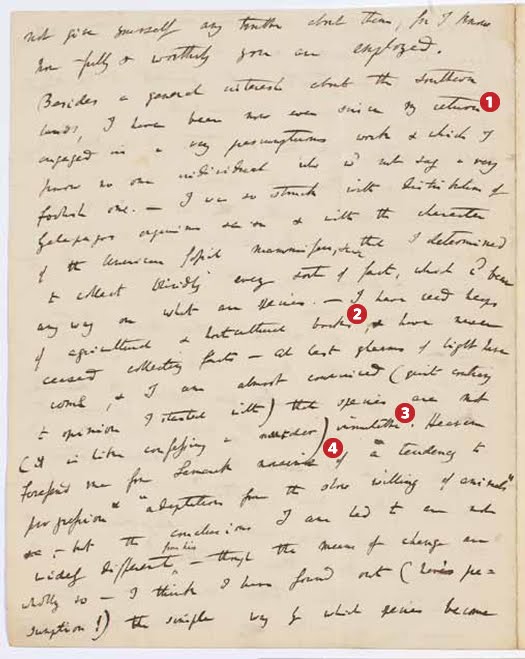 not give yourself any trouble about them, for I know
how fully & worthily you are employed.
Besides a general interest about the Southern
lands, I have been now ever since my return 1
engaged in a very presumptuous work & which I
know no one individual who wd not say a very
foolish one. — I was so struck with distribution of
Galapagos organisms &c &c & with the character
of the American fossil mammifers, &c &c that I determined
to collect blindly every sort of fact, which cd bear
any way on what are species. — I have read heaps
of agricultural & horticultural books 2, & have never
ceased collecting facts — At last gleams of light have
come, & I am almost convinced (quite contrary
to opinion I started with) that species are not
(it is like confessing a murder) immutable 3. Heaven
forfend me from Lamarck nonsense 4 of a "tendency to
progression" "adaptations from the slow willing of animals"
&c, — but the conclusions I am led to are not
widely different from his — though the means of change are
wholly so — I think I have found out (here's pre=
sumption!) the simple way by which species become